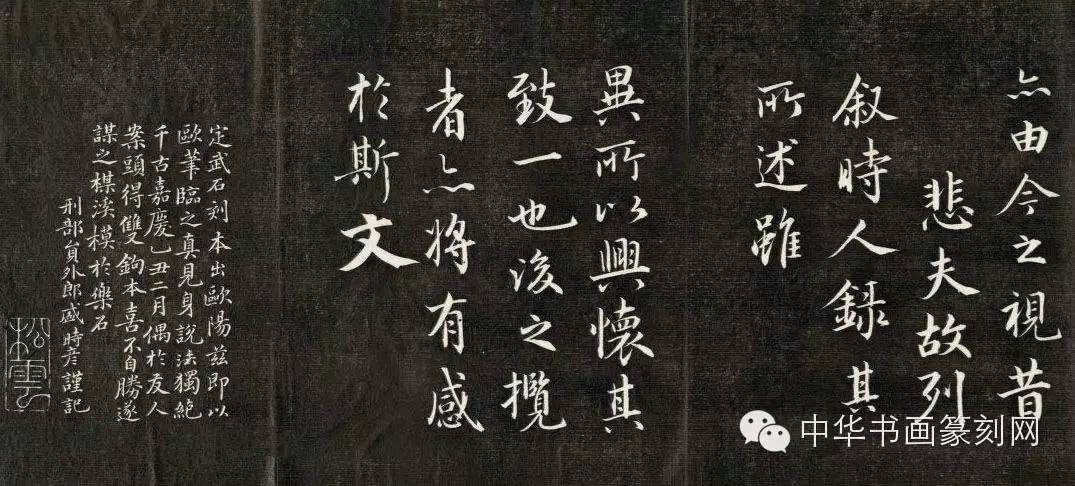 亦由今之視昔
悲夫故列
叙時人錄其
所述雖
異所以興懷其
致一也後之攬
者亦將有感
於斯文
定武石刻本出歐陽茲即以
歐筆臨之真見身說法獨絶
千古嘉慶乙丑二月偶於友人
案頭得雙鉤本喜不自勝遂
謀之楳溪模於樂石
刑部員外郎盛時彥謹記
松雲
中华书画篆刻网